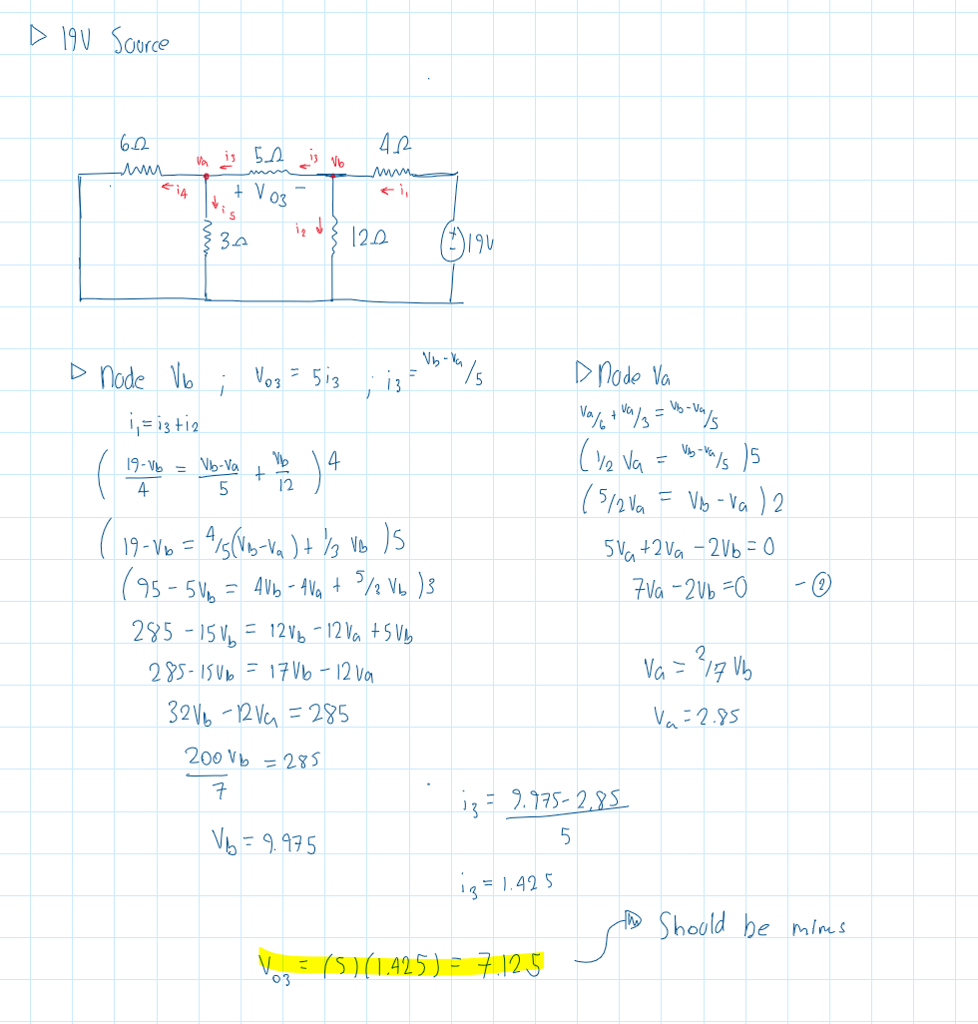 ▷ 19V Source
6Ω
4Ω
Va i3 5Ω i3 Vb
i4 + Vo3 − i1
i5 i2
3Ω 12Ω + − 19V
▷ Node Vb ; Vo3 = 5i3 ; i3 = Vb-Va/5
i1 = i3 + i2
( 19-Vb/4 = Vb-Va/5 + Vb/12 ) 4
( 19 - Vb = 4/5(Vb-Va) + 1/3 Vb ) 5
( 95 - 5Vb = 4Vb - 4Va + 5/2 Vb ) 3
285 - 15Vb = 12Vb - 12Va + 5Vb
285 - 15Vb = 17Vb - 12Va
32Vb - 12Va = 285
200Vb/7 = 285
Vb = 9.975
▷ Node Va
Va/6 + Va/3 = Vb-Va/5
( 1/2 Va = Vb-Va/5 ) 5
( 5/2 Va = Vb - Va ) 2
5Va + 2Va - 2Vb = 0
7Va - 2Vb = 0 - ②
Va = 2/7 Vb
Va = 2.85
i3 = 9.975 - 2.85/5
i3 = 1.425
Should be minus
Vo3 = (5)(1.425) = 7.125